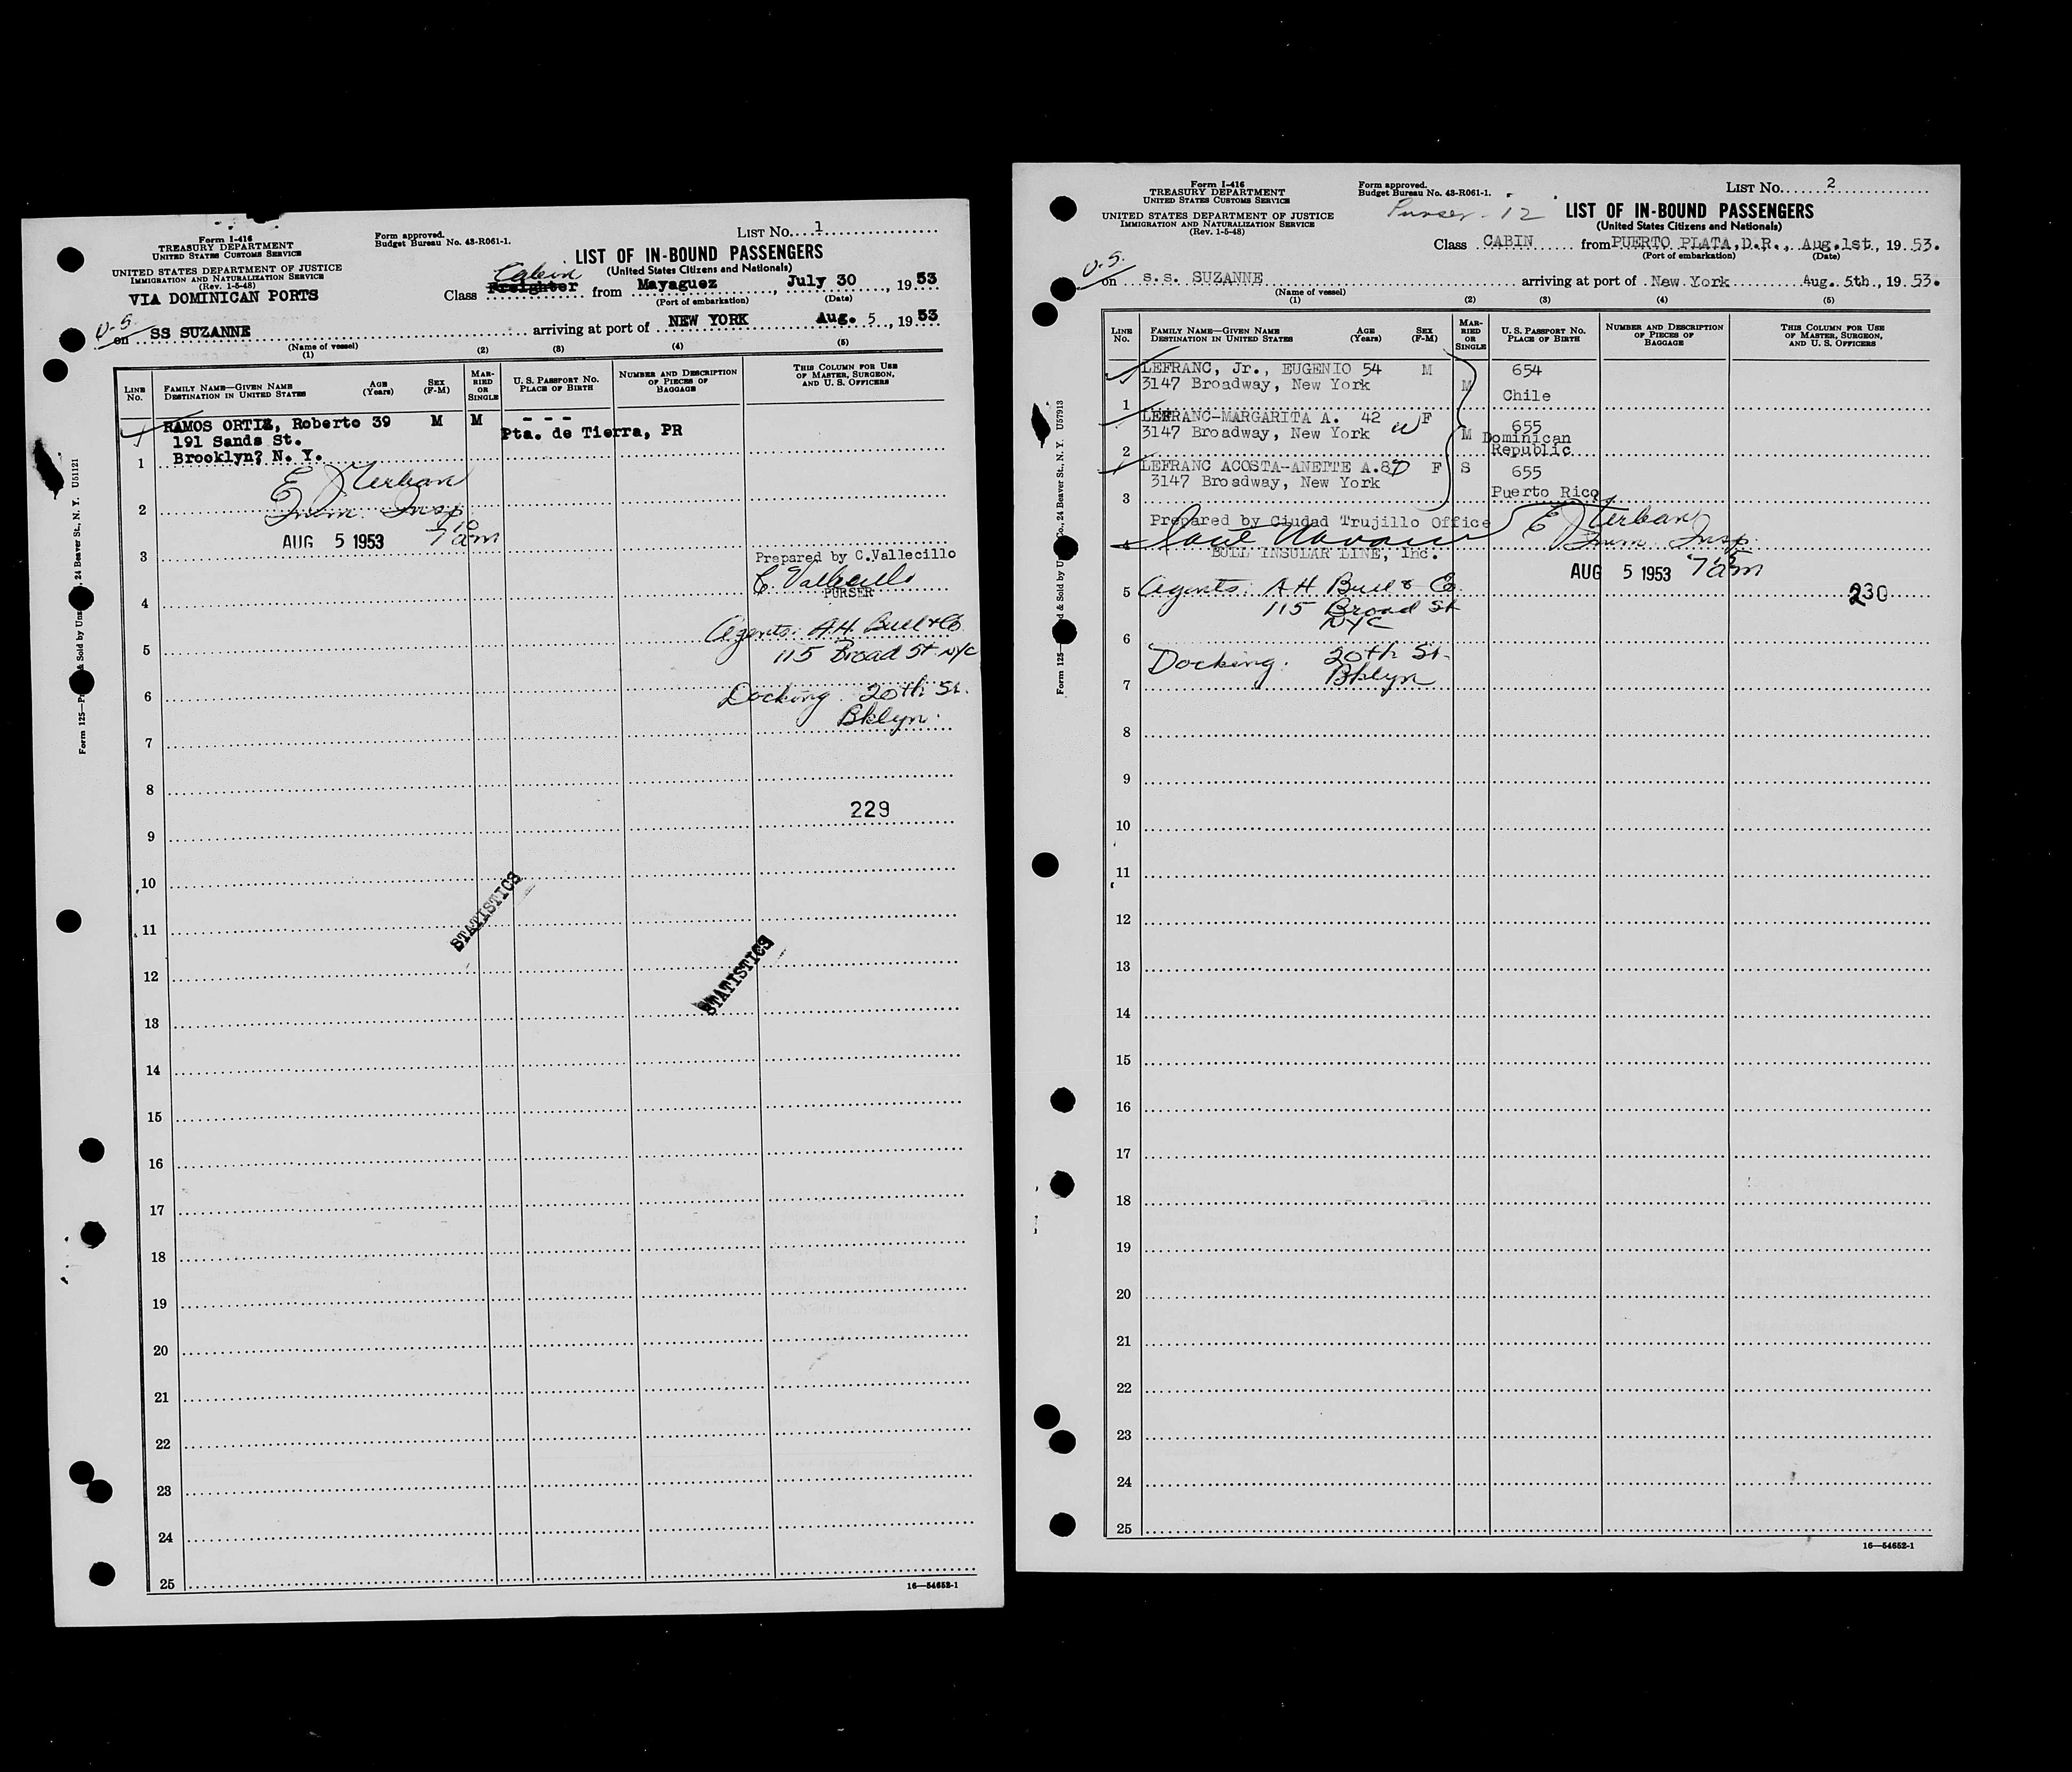 Form I-416
TREASURY DEPARTMENT
UNITED STATES CUSTOMS SERVICE
UNITED STATES DEPARTMENT OF JUSTICE
IMMIGRATION AND NATURALIZATION SERVICE
(Rev. 1-5-48)
VIA DOMINICAN PORTS
Form approved.
Budget Bureau No. 43-R061-1.
LIST No. 1
LIST OF IN-BOUND PASSENGERS
(United States Citizens and Nationals)
Cabin
Class Freighter from Mayaguez, July 30, 1953
(Port of embarkation) (Date)
U.S.
on SS SUZANNE arriving at port of NEW YORK Aug. 5, 1953
(Name of vessel)
(1) (2) (3) (4) (5)
LINE No. FAMILY NAME—GIVEN NAME DESTINATION IN UNITED STATES AGE (Years) SEX (F-M) MARRIED OR SINGLE U. S. PASSPORT No. PLACE OF BIRTH NUMBER AND DESCRIPTION OF PIECES OF BAGGAGE THIS COLUMN FOR USE OF MASTER, SURGEON, AND U. S. OFFICERS
RAMOS ORTIZ, Roberto 39 M M - - -
191 Sands St. Pta. de Tierra, PR
1 Brooklyn? N. Y.
2 Imm. Insp
AUG 5 1953 7 10 am
3 Prepared by C.Vallecillo
C. Vallecillo
4 PURSER
Agents: A.H. Bull & Co
5 115 Broad St. NYC
6 Docking 20th St.
Bklyn.
7
8
229
9
10
11
STATISTICS
12
STATISTICS
13
14
15
16
17
18
19
20
21
22
23
24
25
16—54652-1
24 Beaver St., N. Y. U51121
Form I-416
TREASURY DEPARTMENT
UNITED STATES CUSTOMS SERVICE
UNITED STATES DEPARTMENT OF JUSTICE
IMMIGRATION AND NATURALIZATION SERVICE
(Rev. 1-5-48)
Form approved.
Budget Bureau No. 43-R061-1.
Purser - 12
LIST No. 2
LIST OF IN-BOUND PASSENGERS
(United States Citizens and Nationals)
Class CABIN from PUERTO PLATA,D.R., Aug.1st, 1953.
(Port of embarkation) (Date)
U.S.
on s.s. SUZANNE arriving at port of New York Aug. 5th, 1953.
(Name of vessel)
(1) (2) (3) (4) (5)
LINE No. FAMILY NAME—GIVEN NAME DESTINATION IN UNITED STATES AGE (Years) SEX (F-M) MARRIED OR SINGLE U. S. PASSPORT No. PLACE OF BIRTH NUMBER AND DESCRIPTION OF PIECES OF BAGGAGE THIS COLUMN FOR USE OF MASTER, SURGEON, AND U. S. OFFICERS
LEFRANC, Jr., EUGENIO 54 M 654
3147 Broadway, New York M
1 Chile
LEFRANC-MARGARITA A. 42 W F 655
3147 Broadway, New York M Dominican
2 Republic
LEFRANC ACOSTA-ANETTE A.8 D F S 655
3147 Broadway, New York
3 Puerto Rico
Prepared by Ciudad Trujillo Office
4 Imm. Insp.
BULL INSULAR LINE, Inc.
AUG 5 1953 7 15 am
5 Agents: A H Bull & Co 230
115 Broad St
NYC
6
Docking: 20th St.
7 Bklyn
8
9
10
11
12
13
14
15
16
17
18
19
20
21
22
23
24
25
16—54652-1
24 Beaver St., N. Y. U57913